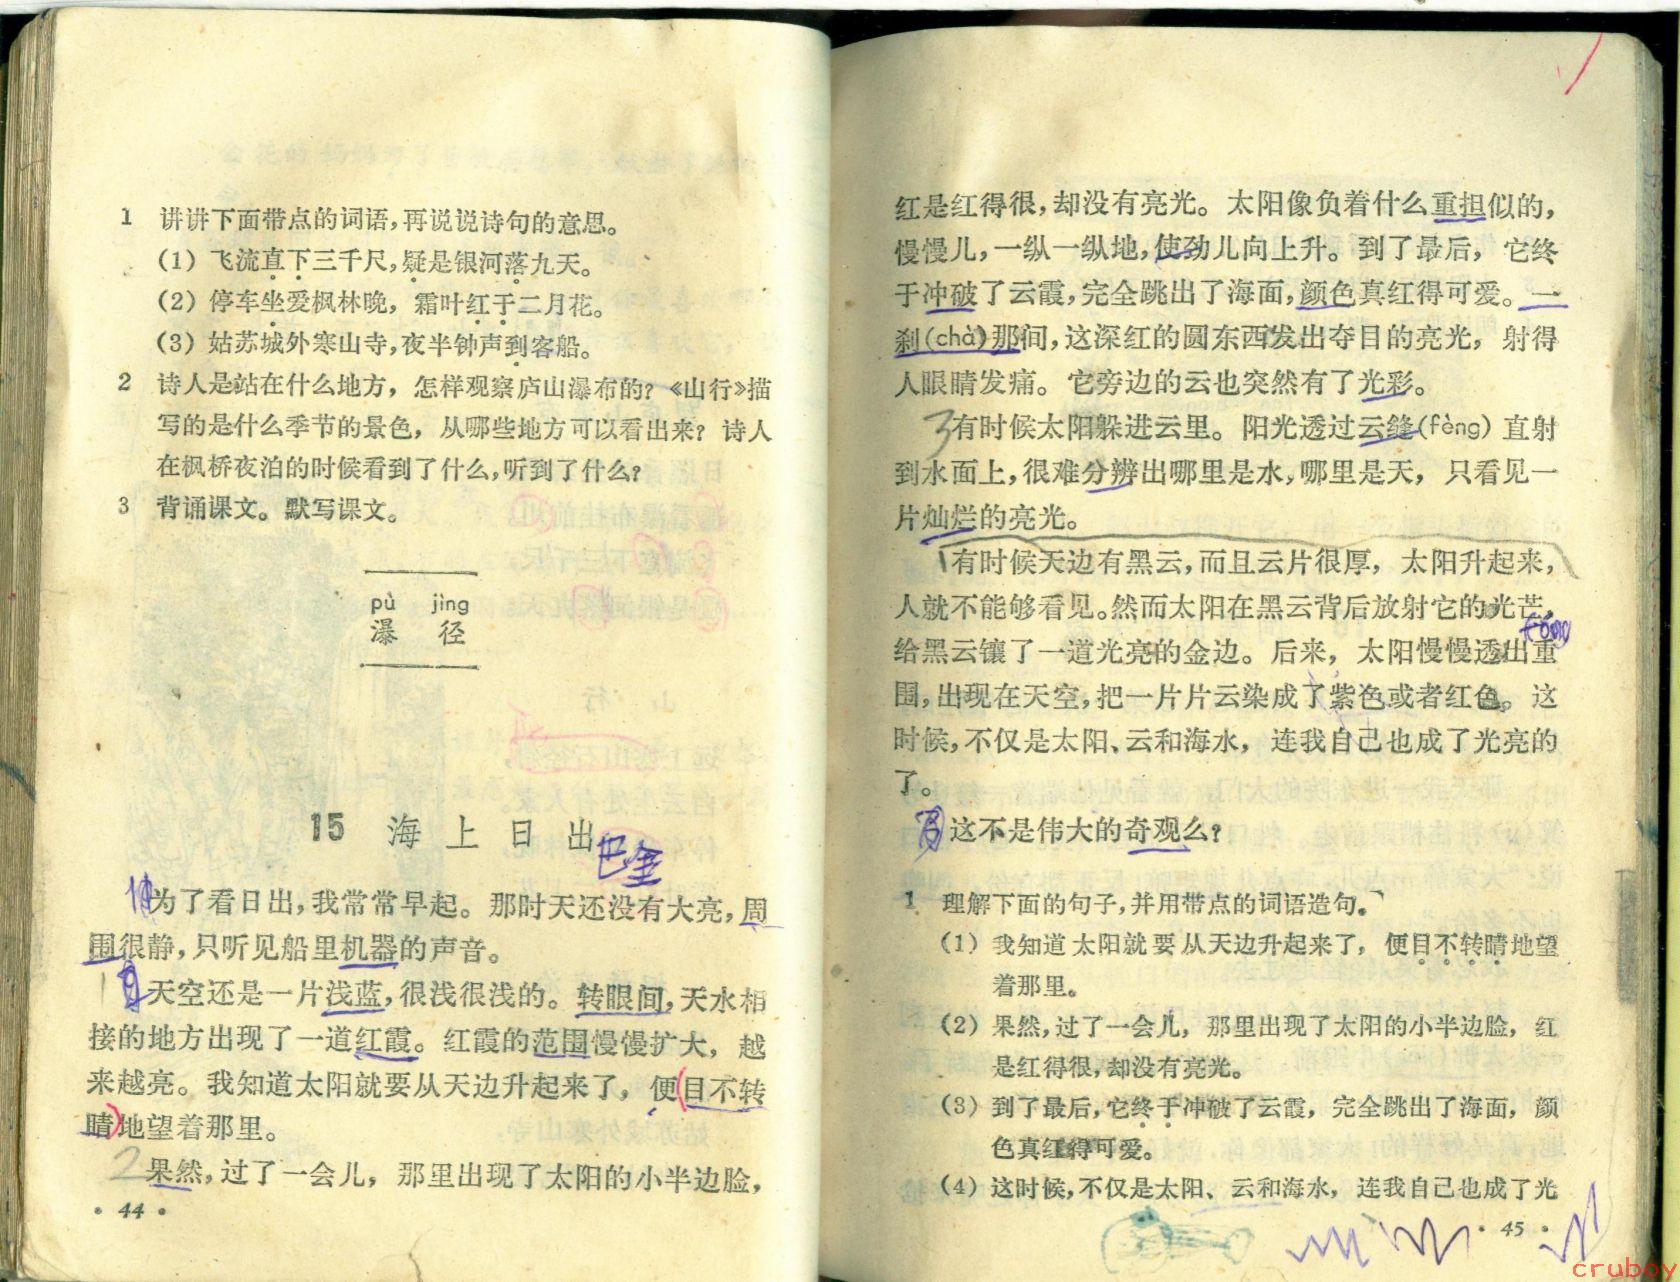 1 讲讲下面带点的词语，再说说诗句的意思。
(1) 飞流直下三千尺，疑是银河落九天。
(2) 停车坐爱枫林晚，霜叶红于二月花。
(3) 姑苏城外寒山寺，夜半钟声到客船。
2 诗人是站在什么地方，怎样观察庐山瀑布的？《山行》描
写的是什么季节的景色，从哪些地方可以看出来？诗人
在枫桥夜泊的时候看到了什么，听到了什么？
3 背诵课文。默写课文。
pù jìng
瀑 径
15 海上日出
巴金
为了看日出，我常常早起。那时天还没有大亮，周
围很静，只听见船里机器的声音。
天空还是一片浅蓝，很浅很浅的。转眼间，天水相
接的地方出现了一道红霞。红霞的范围慢慢扩大，越
来越亮。我知道太阳就要从天边升起来了，便目不转
睛地望着那里。
2 果然，过了一会儿，那里出现了太阳的小半边脸，
· 44 ·
红是红得很，却没有亮光。太阳像负着什么重担似的，
慢慢儿，一纵一纵地，使劲儿向上升。到了最后，它终
于冲破了云霞，完全跳出了海面，颜色真红得可爱。一
刹(chà)那间，这深红的圆东西发出夺目的亮光，射得
人眼睛发痛。它旁边的云也突然有了光彩。
3 有时候太阳躲进云里。阳光透过云缝(fèng)直射
到水面上，很难分辨出哪里是水，哪里是天，只看见一
片灿烂的亮光。
有时候天边有黑云，而且云片很厚，太阳升起来，
人就不能够看见。然而太阳在黑云背后放射它的光芒，
给黑云镶了一道光亮的金边。后来，太阳慢慢透出重
围，出现在天空，把一片片云染成了紫色或者红色。这
时候，不仅是太阳、云和海水，连我自己也成了光亮的
了。
这不是伟大的奇观么？
1 理解下面的句子，并用带点的词语造句。
(1) 我知道太阳就要从天边升起来了，便目不转睛地望
着那里。
(2) 果然，过了一会儿，那里出现了太阳的小半边脸，红
是红得很，却没有亮光。
(3) 到了最后，它终于冲破了云霞，完全跳出了海面，颜
色真红得可爱。
(4) 这时候，不仅是太阳、云和海水，连我自己也成了光
· 45 ·
cruboy